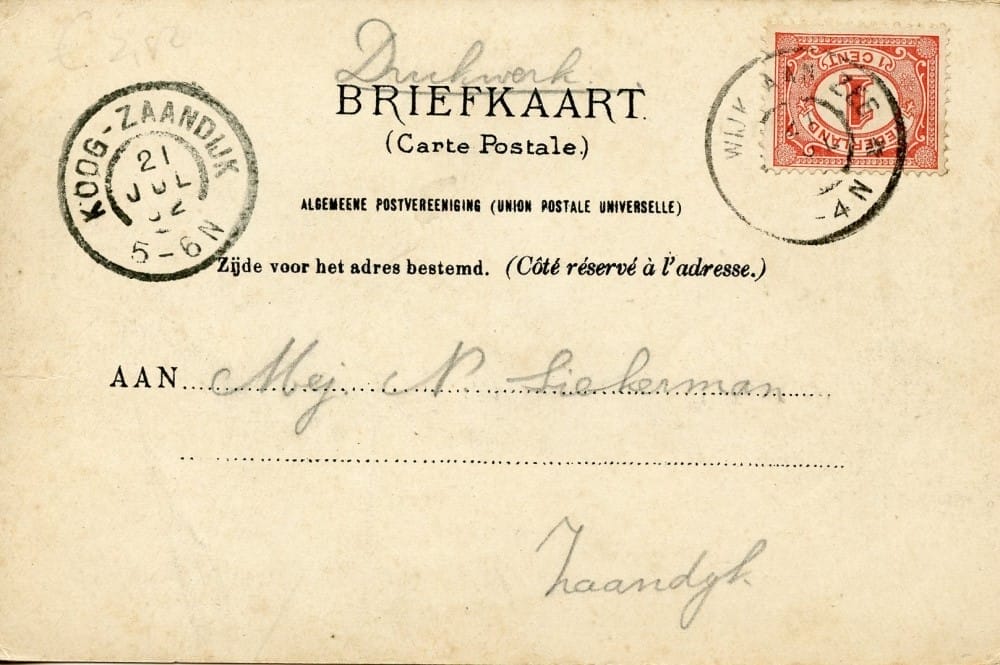 Drukwerk.
BRIEFKAART.
(Carte Postale.)
ALGEMEENE POSTVEREENIGING (UNION POSTALE UNIVERSELLE)
Zijde voor het adres bestemd. (Côté réservé à l'adresse.)
KOOG-ZAANDIJK
21
JUL
02
5-6N
WIJK AAN
-4N
1 CENT
1
NEDERLAND
AAN Mej. N. Liekerman
Zaandyk.